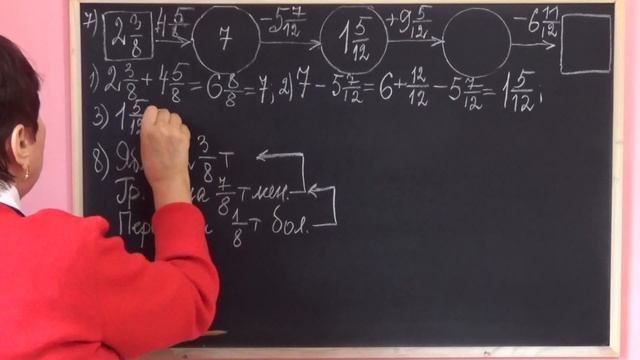 7) 2 3/8 +4 5/8 7 -5 7/12 1 5/12 +9 5/12 -6 11/12
1) 2 3/8 + 4 5/8 = 6 8/8 = 7, 2) 7 - 5 7/12 = 6 + 12/12 - 5 7/12 = 1 5/12;
3) 1 5/12
8) 3/8 т
Гр. 7/8 т мен.
1/8 т бол.